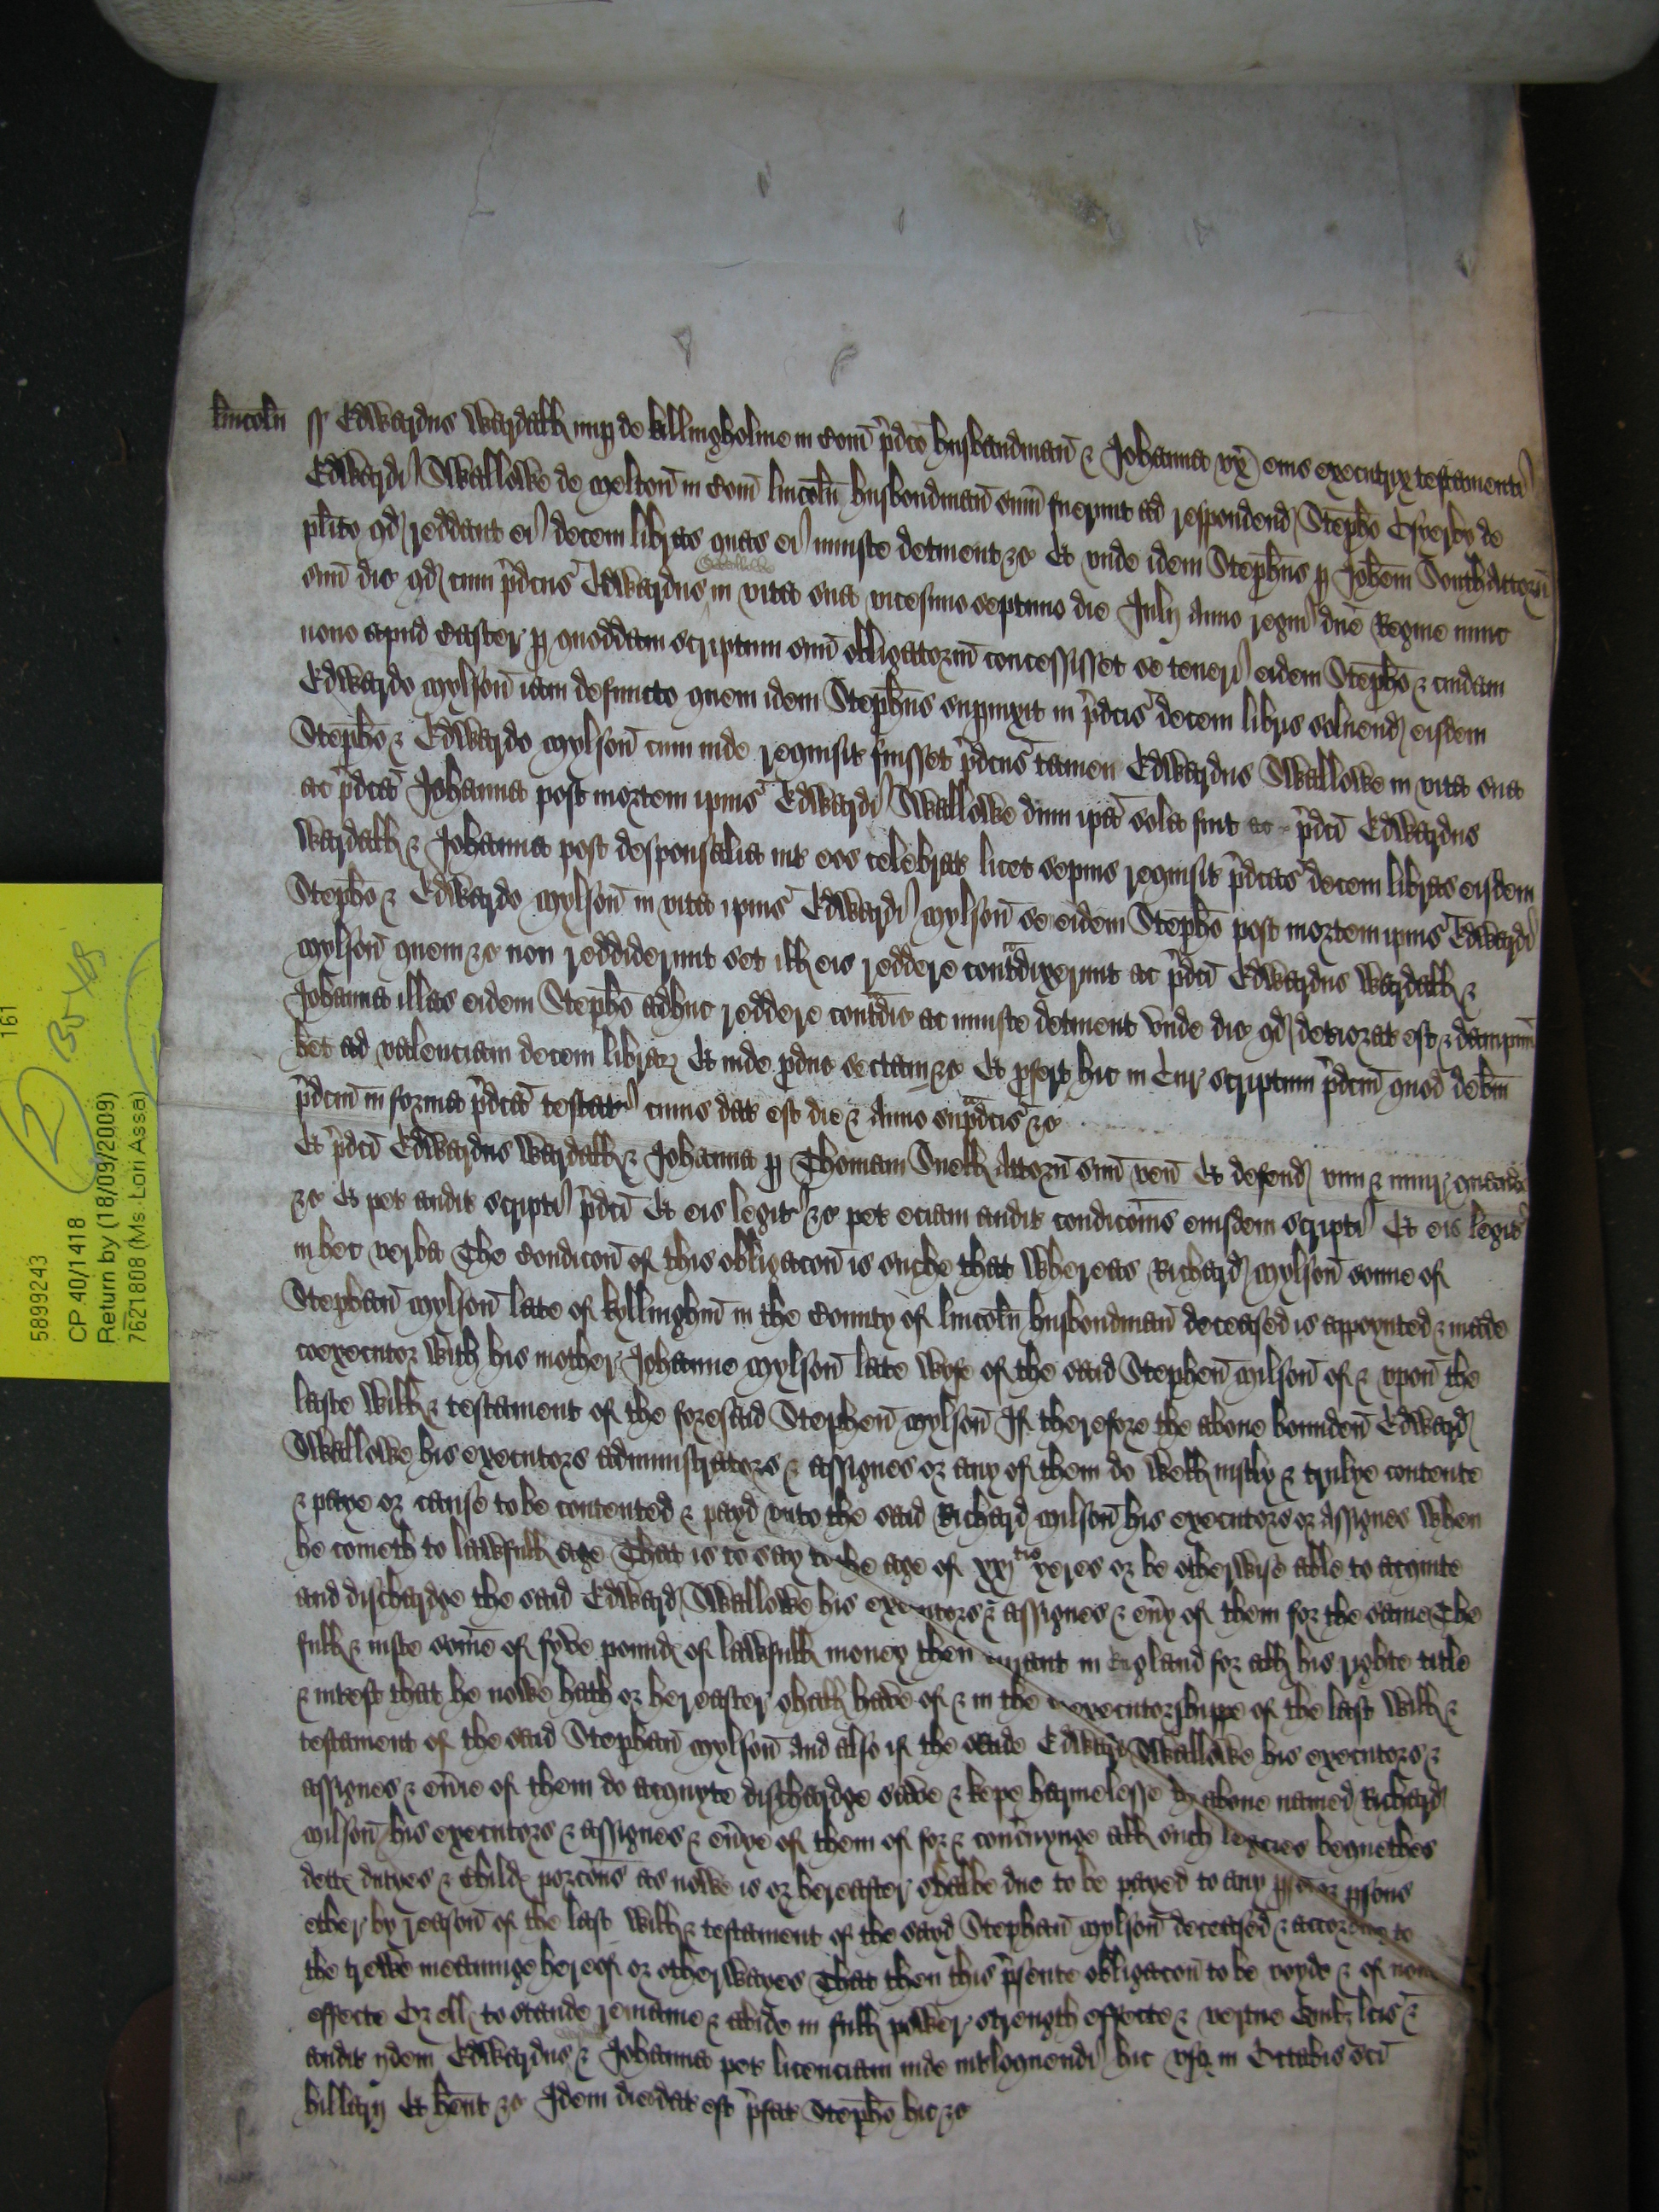 lincoln̄ ss Edwardus Wardall nup de killingholme in Com̄ p̄dco husbandman̄ & Johanna vx̄ eius executrix testamenti
Edwardi Swallowe de melton̄ in Com̄ lincoln̄ husbondman̄ sum̄ fuerunt ad respondend Stepho de
plito qd reddant ei decem libras quas ei iniuste detinent &c Et vnde idem Stephus p Johem South Attorn̄
suū dic qd cum p̄dcus Edwardus Swallowe in vita sua vicesimo septimo die Julij Anno regni dn̄e Regine nunc
nono apud Caster p quoddam scriptum suū obligatoriū concessisset se teneri eidem Stepho & cuidam
Edwardo mylson̄ iam defuncto quem idem Stephus supuixit in p̄dcis decem libris soluend eisdem
Stepho & Edwardo mylson̄ cum inde requisit fuisset p̄dcus tamen Edwardus Swallowe in vita sua
ac p̄dca Johanna post mortem ipius Edwardi Swallowe dum ipa sola fuit ac p̄dci Edwardus
Wardall & Johanna post desponsalia int eos celebrat licet sepius requisit p̄dcas decem libras eisdem
Stepho & Edwardo mylson̄ in vita ipius Edwardi mylson̄ se eidem Stepho post mortem ipius Edwardi
mylson̄ quem &c non reddiderunt set ill eis reddere contradixerunt ac p̄dci Edwardus Wardall &
Johanna illas eidem Stepho adhuc reddere contradic ac iniuste detinent vnde dic qd deteriorat est & dampnū
het ad valenciam decem librar Et inde pduc sectam &c Et pfert hic in Cur scriptum p̄dcm quod debm̄
p̄dcm in forma p̄dca testat cuius dat est die & Anno sup̄dcis &c
Et p̄dci Edwardus Wardall & Johanna p Thomam Snell Attorn̄ suū ven̄ Et defend vim & iniur quando
&c Et pet audit scripti p̄dci Et eis legit &c pet eciam audit condicōnis eiusdem scripti Et eis legit
in hec verba The Condicōn of this obligacōn is suche that Whereas Richard mylson̄ sonne of
Stephan̄ mylson̄ late of kyllinghm̄ in the County of lincoln̄ husbondman̄ deceased is appoynted & made
coexecutor With his mother Johanne mylson̄ late Wyfe of the said Stephen̄ milson̄ of & vpon̄ the
laste Will & testament of the foresaid Stephen̄ mylson̄ If therefore the aboue bounden̄ Edward
Swallowe his executors administrators & assignes or any of them do Well iustly & trulye contente
& paye or cause to be contented & payd vnto the said Richard milson̄ his executors or Assignes When
he cometh to lawfull age That is to say to the age of xxj yeres or be otherwise able to acquite
and dischardge the said Edward Swallowe his executors & assignes & eũy of them for the same The
full & iuste some of fyve pound of lawfull money then curant in England for all his righte title
& intrest that he nowe hath or hereafter shall have of & in the executorshippe of the last Will &
testament of the said Stephan̄ mylson̄ And also if the saide Edward Swallowe his executors &
assignes & eũie of them do acquyte dischardge save & kepe harmelesse the aboue named Richard
milson̄ his executors & assignes & eũye of them of for & concñynge all such legacies bequethes
dett dutyes & child porcōns as nowe is or hereafter shalbe due to be payed to any pson or psons
ether by reason̄ of the last Will & testament of the sayd Stephan̄ mylson̄ deceased & according to
the trewe meaninge hereof or otherwayes That then this p̄sente obligacōn to be voyde & of none
effecte Or ell to stande remaine & abide in full power strength effecte & vertue Quib lcis &
audit ijdem Edwardus & Johanna pet licenciam inde intloquendi hic vsq in Octabis sci
hillarij Et hent &c Idem dies dat est p̄fat Stepho hic &c
5899243
161
CP 40/1418
Return by (18/09/2009)
7621808 (Ms Lori Assa)